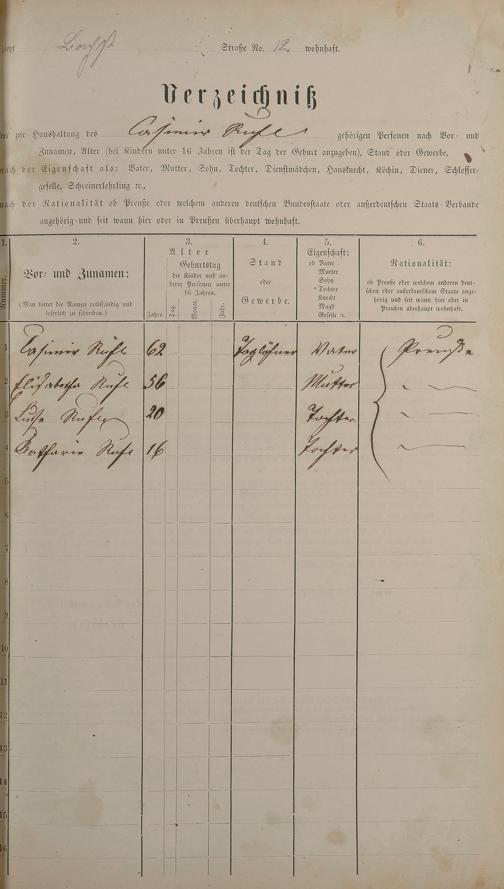 Straße No. 12 wohnhaft.
Verzeichniß
der zur Haushaltung des Casimir Ruhl gehörigen Personen nach Vor- und
Zunamen, Alter (bei Kindern unter 16 Jahren ist der Tag der Geburt anzugeben), Stand oder Gewerbe,
nach der Eigenschaft als: Vater, Mutter, Sohn, Tochter, Dienstmädchen, Hausknecht, Köchin, Diener, Schlosser-
geselle, Schreinerlehrling ꝛc.,
nach der Nationalität ob Preuße oder welchem anderen deutschen Bundesstaate oder außerdeutschen Staats-Verbande
angehörig und seit wann hier oder in Preußen überhaupt wohnhaft.
1. 2. 3. 4. 5. 6.
Nummer.
Vor- und Zunamen:
(Man bittet die Namen vollständig und
leserlich zu schreiben.)
Alter
Geburtstag
der Kinder und an-
derer Personen unter
16 Jahren.
Jahre. Tag. Monat. Jahr.
Stand
oder
Gewerbe.
Eigenschaft:
ob Vater
Mutter
Sohn
Tochter
Knecht
Magd
Geselle ꝛc.
Nationalität:
ob Preuße oder welchem anderen deut-
schen oder außerdeutschen Staate ange-
hörig und seit wann hier oder in
Preußen überhaupt wohnhaft.
1 Casimir Ruhl 62 Taglöhner Vater Preuße
2 Elisabetha Ruhl 56 Mutter
3 Ruhl 20 Tochter
4 Katharie Ruhl 16 Tochter
5
6
7
8
9
10
11
12
13
14
15
16